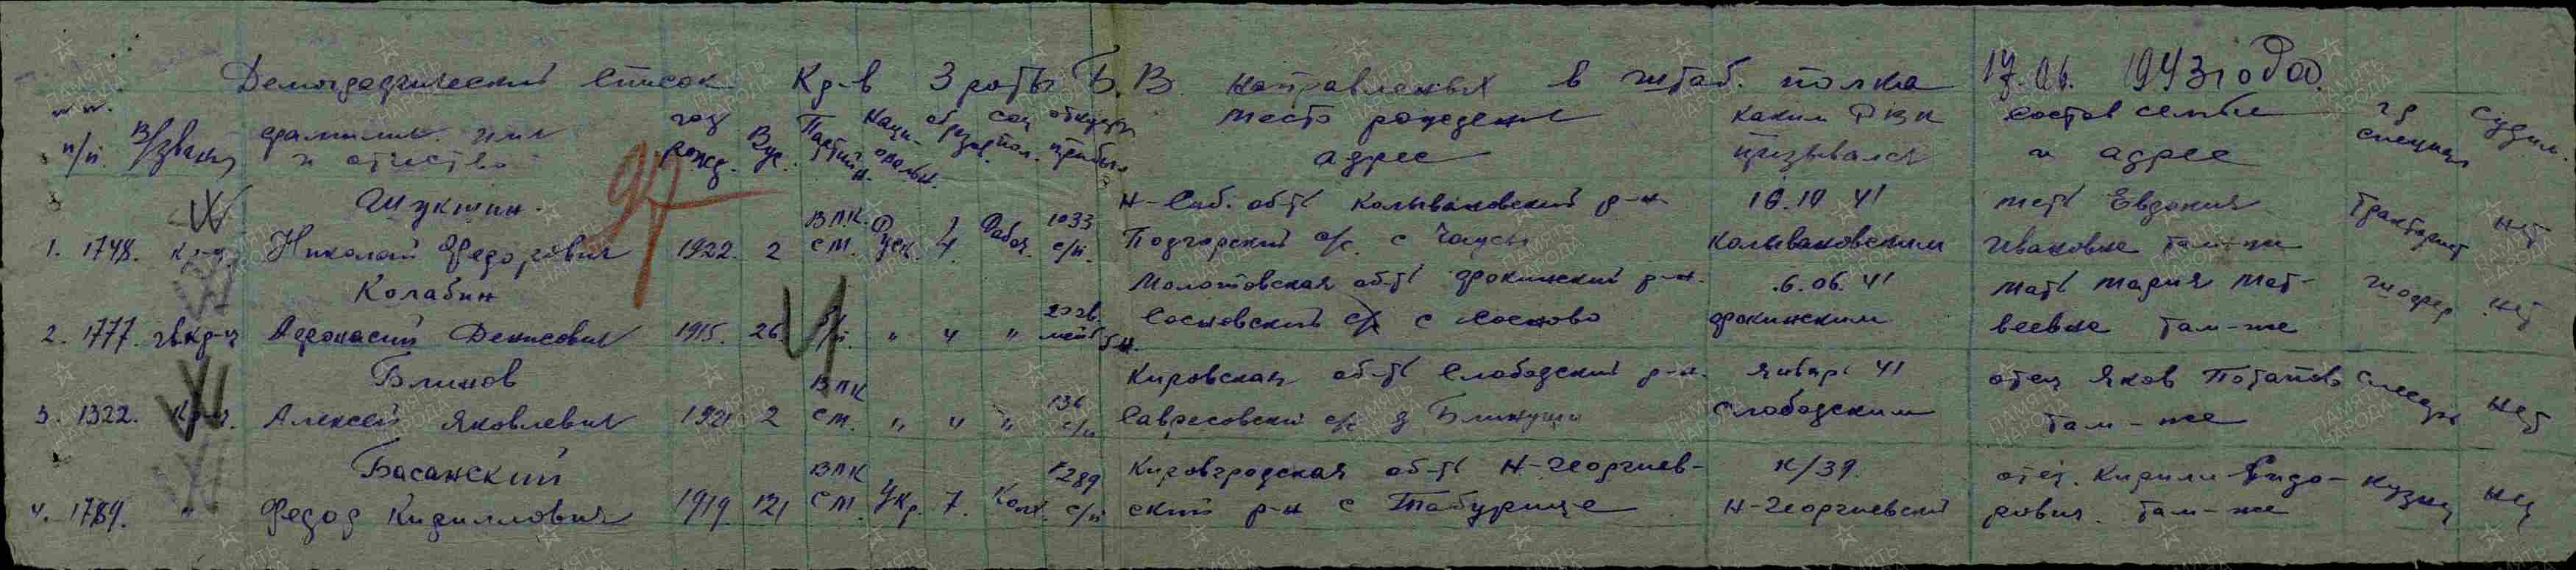 Демографический список Кр-в 3 роты Б.В. направленых в штаб. полка 17.06. 1943 года.
п/п. В/звани фамилия имя и отчество год рожд. Вус. Партийн. Национальн. образов соц пол. откуда прибыл место рождения адрес каким РВК призывался состав семьи и адрес гр специал судим.
97
Шукшин. ВЛК Р 1033 Н-Сиб. об-ть Колывановский р-н 10.10 41 мать Евдокия тракторист нет
1. 1748. кр-ц Николай Федорович 1922. 2 см. уск. 4. Рабоч. с/п. Подгорский с/с. с Чаусы Колывановским Ивановна там-же
Колабин Молотовская об-ть фокинский р-н. .6.06.41 мать Мария Мат- шофер .нет
2. 1777. гвкр-ц Афонасий Денисович 1915. 26 б/п. " 4 " Сосновский с/с с Сосново фокинским веевна там-же
Блинов ВЛК 136 Кировская об-ть Слободский р-н. январь 41 отец Яков Потапов слесарь нет
3. 1322. кр-ц. Алексей Яковлевич 1921 2 см. " 4 " с/п с/с д Слободским там-же
Басанский ВЛК 1289 Кировградская об-ть Н-Георгиев- к/39. отец. Кирилл Сидо- кузнец нет
4. 1789. " Федор Кириллович 1919. 121 см. Укр. 7. Колх. с/п ский р-н с Табурище Н-Георгиевский рович. там-же
ПАМЯТЬ НАРОДА